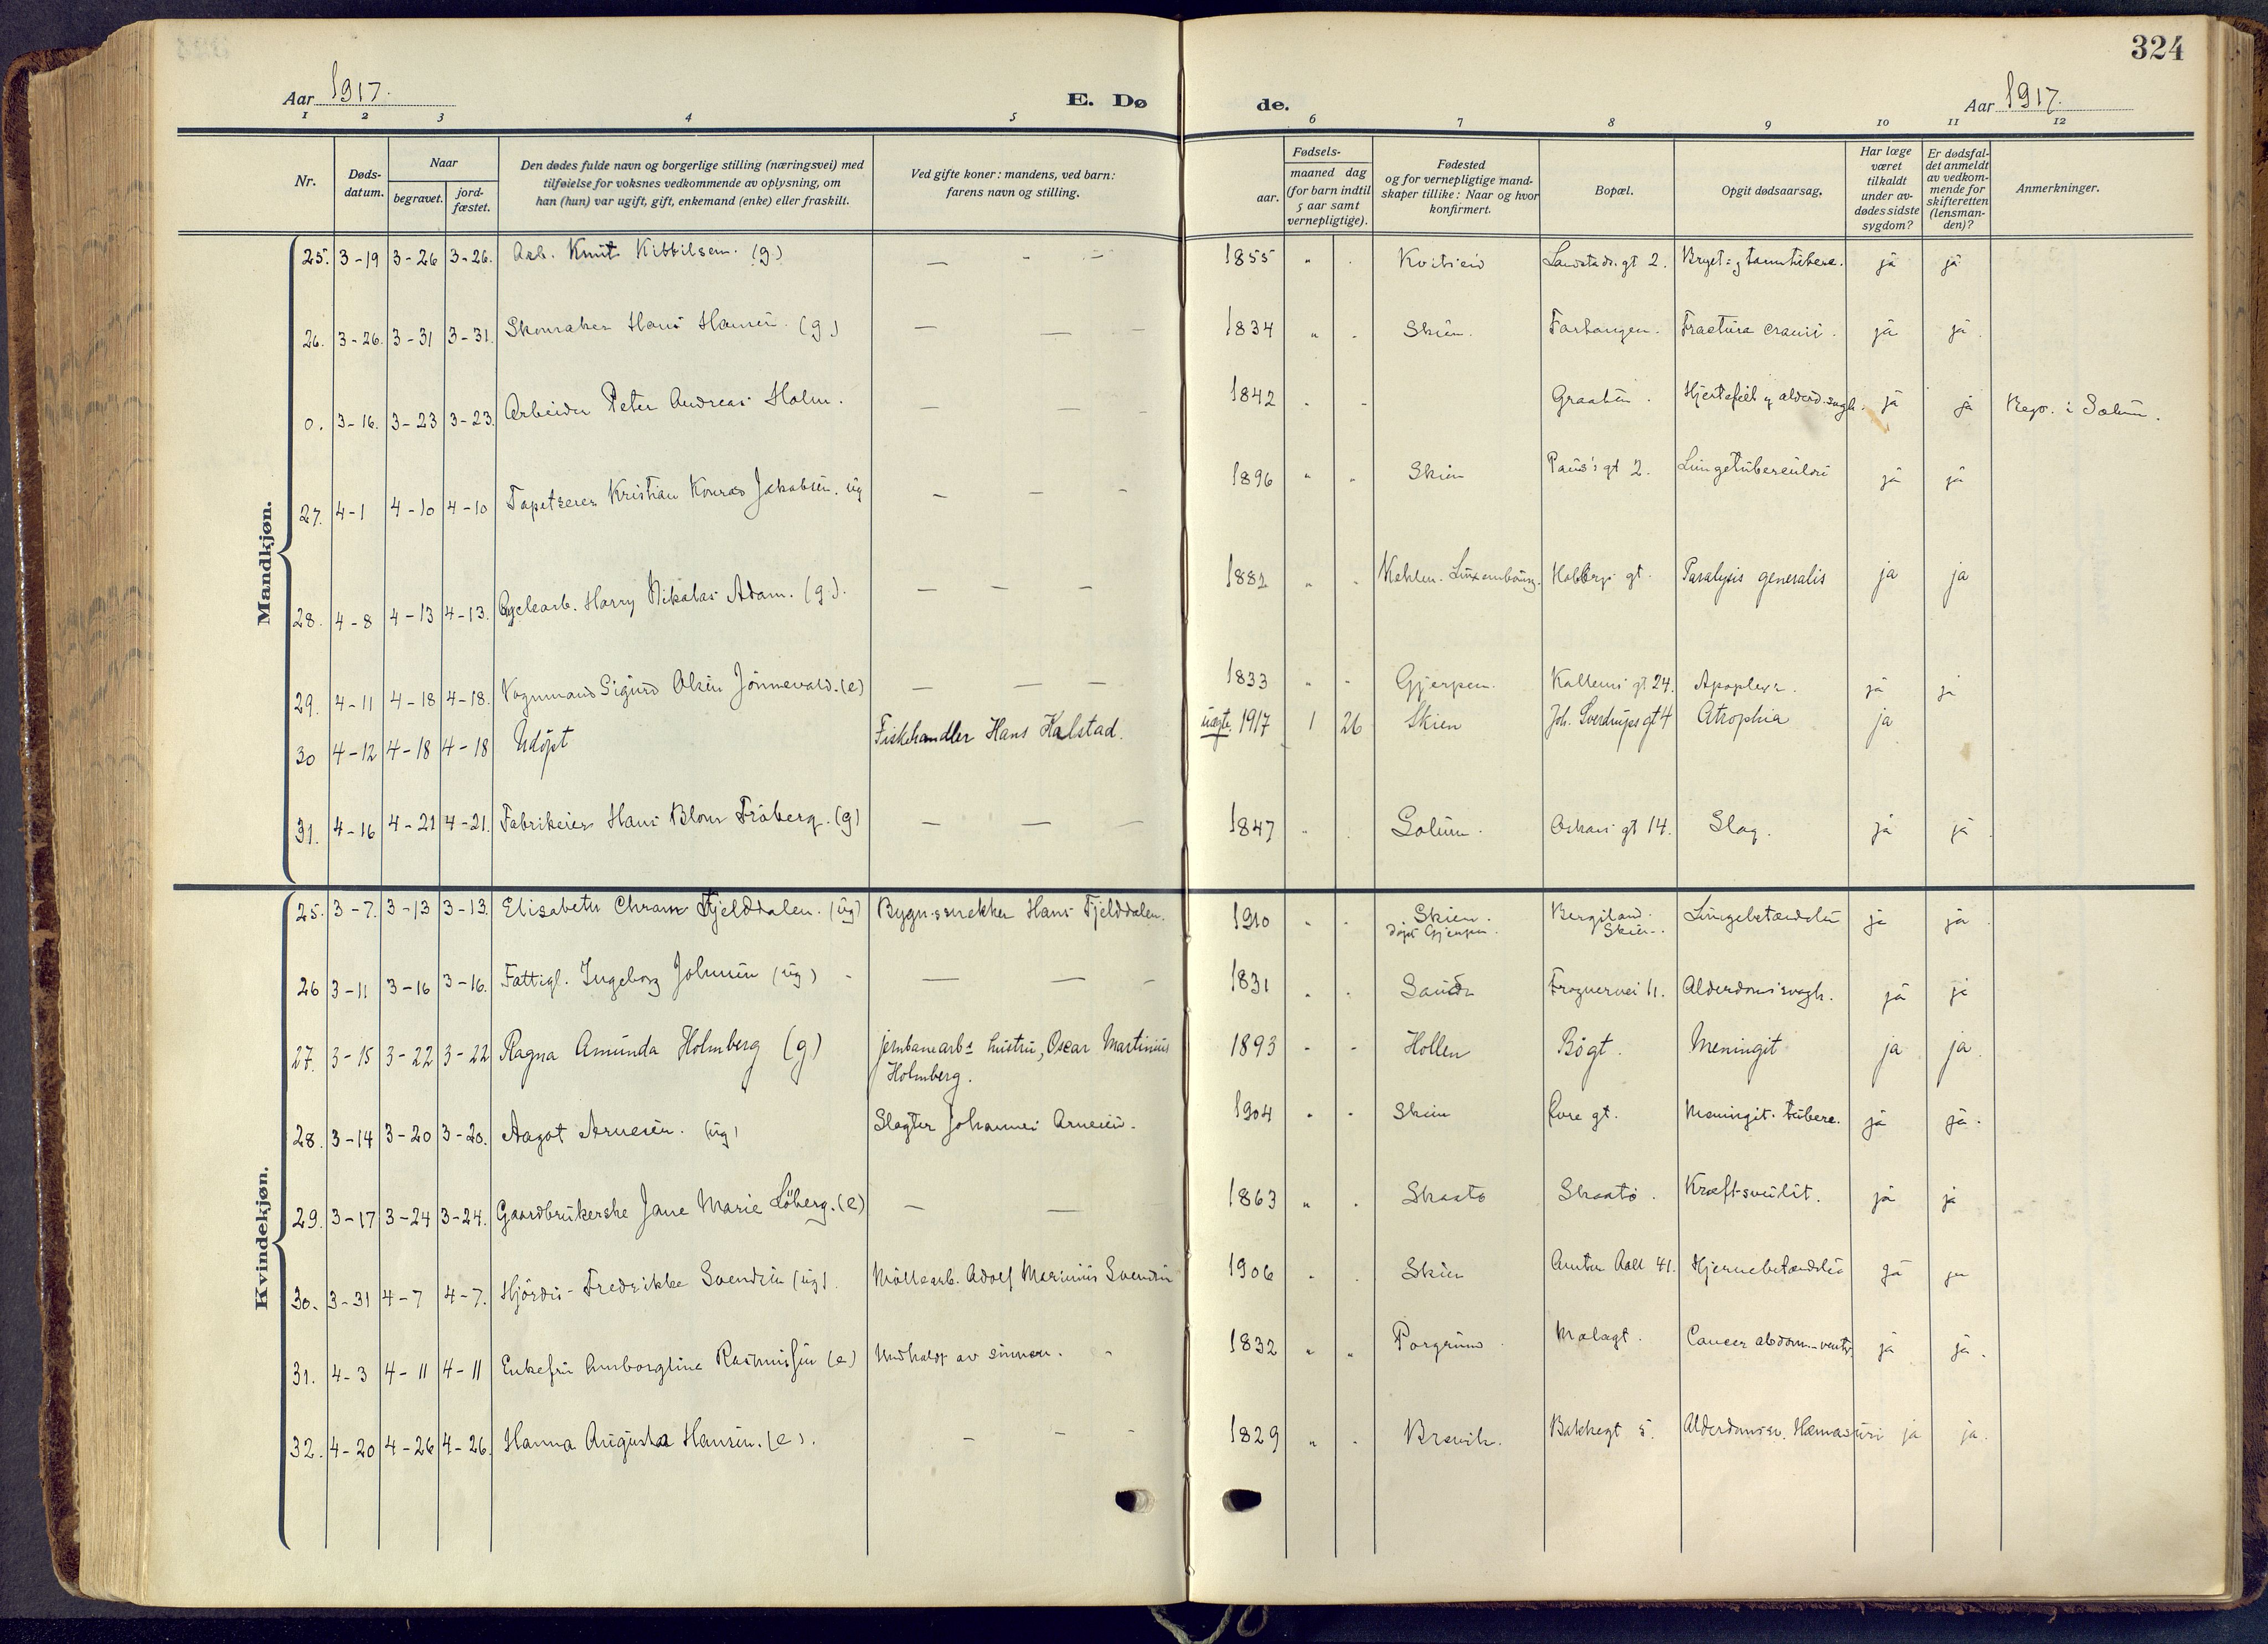 324
Aar 1917.
E. Dø
de.
Aar 1917.
1 2 3 4 5 6 7 8 9 10 11 12
Nr.
Døds-
datum.
Naar
begravet.
jord-
fæstet.
Den dødes fulde navn og borgerlige stilling (næringsvei) med
tilføielse for voksnes vedkommende av oplysning, om
han (hun) var ugift, gift, enkemand (enke) eller fraskilt.
Ved gifte koner: mandens, ved barn:
farens navn og stilling.
Fødsels-
aar.
maaned dag
(for barn indtil
5 aar samt
vernepligtige).
Fødested
og for vernepligtige mand-
skaper tillike: Naar og hvor
konfirmert.
Bopæl.
Opgit dødsaarsag.
Har læge
været
tilkaldt
under av-
dødes sidste
sygdom?
Er dødsfal-
det anmeldt
av vedkom-
mende for
skifteretten
(lensman-
den)?
Anmerkninger.
Mandkjøn.
25. 3-19 3-26 3-26. Arb. Knut Kittilsen. (g.) — - — 1855 " . Kvitseid Landstads. gt 2. Bryst= og tarmtuberc. ja ja
26. 3-26. 3-31 3-31. Skomaker Hans Hansen. (g.) — — - 1834 " . Skien. Forhaugen. Fractura cranii. ja ja.
0. 3-16. 3-23 3-23. Arbeider Peter Andreas Holm. — — - 1842 - - Graaten. Hjertefeil og alderd.svagh. ja ja Begr. i Solum.
27. 4-1 4-10 4-10 Tapetserer Kristian Konrad Jakobsen. ug — — - 1896 " " Skien Paus's gt 2. Lungetuberculosi ja ja
28. 4-8 4-13 4-13. Harry Nikolas Adam. (g.). — — — 1882 " . Kehlen. Luxembourg. Holbergs gt. Paralysis generalis ja ja
29. 4-11 4-18 4-18. Vognmand Sigurd Olsen Jønnevald. (e) — — — 1833 " - Gjerpen. gt 24. Apoplexi. ja ja
30 4-12 4-18 4-18 Udøpt Fiskehandler Hans Kalstad. uegte. 1917 1 26 Skien Joh. Sverdrups gt 4 Atrophia ja
31. 4-16 4-21 4-21. Fabrikeier Hans Blom Frøberg. (g) — — - 1847 " . Solum. Oskars gt 14. Slag. ja ja.
Kvindekjøn.
25. 3-7. 3-13 3-13. Elisabeth Chram Fjelddalen. (ug) Bygn.ssnekker Hans Fjelddalen. 1910 " - Skien. Bergsland. Lungebetændelse ja ja.
døpt Gjerpen. Skien.
26 3-11 3-16 3-16. Fattigl. Ingeborg Johnsen (ug) - — — - 1831 " . Frognervei 11. Alderdomssvagh. ja ja
27. 3-15 3-22 3-22 Ragna Amunda Holmberg (g) jernbanearbs hustru, Oscar Martinius 1893 - - Hollen Bøgt. Meningit ja ja.
Holmberg.
28. 3-14 3-20 3-20. Aagot Arnesen. (ug) Slagter Johannes Arnesen. 1904 " - Skien gt. Meningit. tuberc. ja ja.
29. 3-17 3-24 3-24. Gaardbrukerske Jane Marie Løberg. (e) — — 1863 " . Skaatø Skaatø. Kræftsvulst. ja ja
30. 3-31 4-7 4-7. Hjørdis Fredrikke Svendsen (ug). Møllearb. Adolf Marinius Svendsen 1906 . . Skien Anton Aall 41. Hjernebetændelse ja ja
31. 4-3 4-11 4-11 Enkefru Amborgline Rasmussen (e) Underholdt av sønnen. - 1832 " " Porsgrund Mælagt. Cancer abdom.-ventr. ja ja.
32. 4-20 4-26 4-26. Hanna Augusta Hansen. (e). - - - 1829 " . Brevik. Bakkegt 5. Alderdomssv. Hæmaturi ja ja.